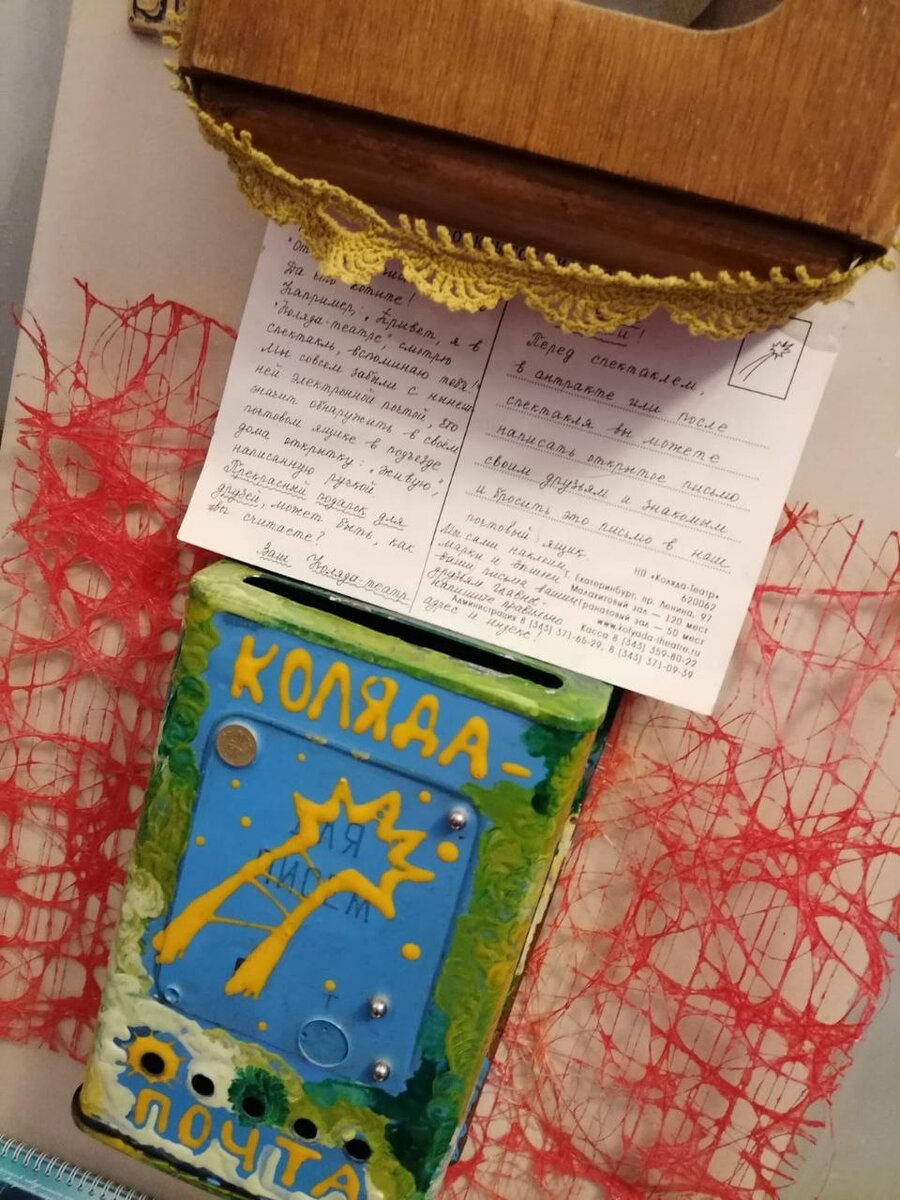 Да что хотите!
Например: „Привет, я в
"Коляда-театре", смотрю
спектакль, вспоминаю тебя!"
Мы совсем забыли с нынеш-
ней электронной почтой, что
значит обнаружить в своём
почтовом ящике в подъезде
дома открытку: „Живую",
написанную рукой
Прекрасный подарок для
друзей, может быть, как
вы считаете?
Ваш Коляда-театр
Перед спектаклем,
в антракте или после
спектакля вы можете
написать открытое письмо
своим друзьям и знакомым
и бросить это письмо в наш
почтовый ящик.
Мы сами наклеим
марки и вышлем
ваши письма вашим
друзьям главное-
напишите правильно
адрес и индекс!
НП «Коляда-Театр»
620062
г. Екатеринбург, пр. Ленина, 97
Малахитовый зал — 120 мест
Гранатовый зал — 50 мест
www.kolyada-theatre.ru
Касса 8 (343) 359-80-22
Администрация 8 (343) 371-65-29, 8 (343) 371-09-39
КОЛЯДА-
ПОЧТА